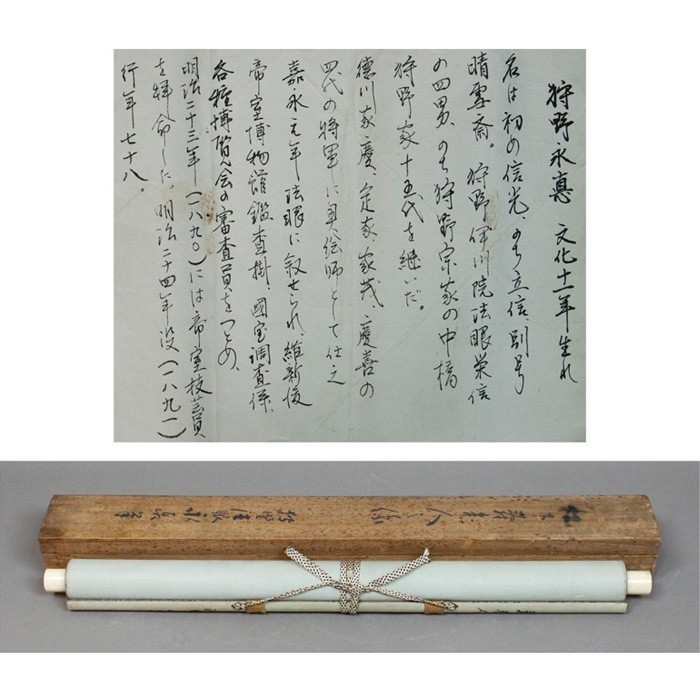 狩野永悳 文化十一年生れ
名は初め信光、のち立信、別号
晴雪斎。狩野伊川院法眼栄信
の四男、のち狩野宗家の中橋
狩野家十五代を継いだ。
徳川家慶、定家、家茂、慶喜の
四代の将軍に奥絵師として仕え
嘉永元年法眼に叙せられ、維新後
帝室博物館鑑査掛、國宝調査係、
各種博覧会の審査員をつとめ、
明治二十三年(一八九〇)には帝室技芸員
を拝命した。明治二十四年没(一八九一)
行年七十八。
狩野法眼永悳筆